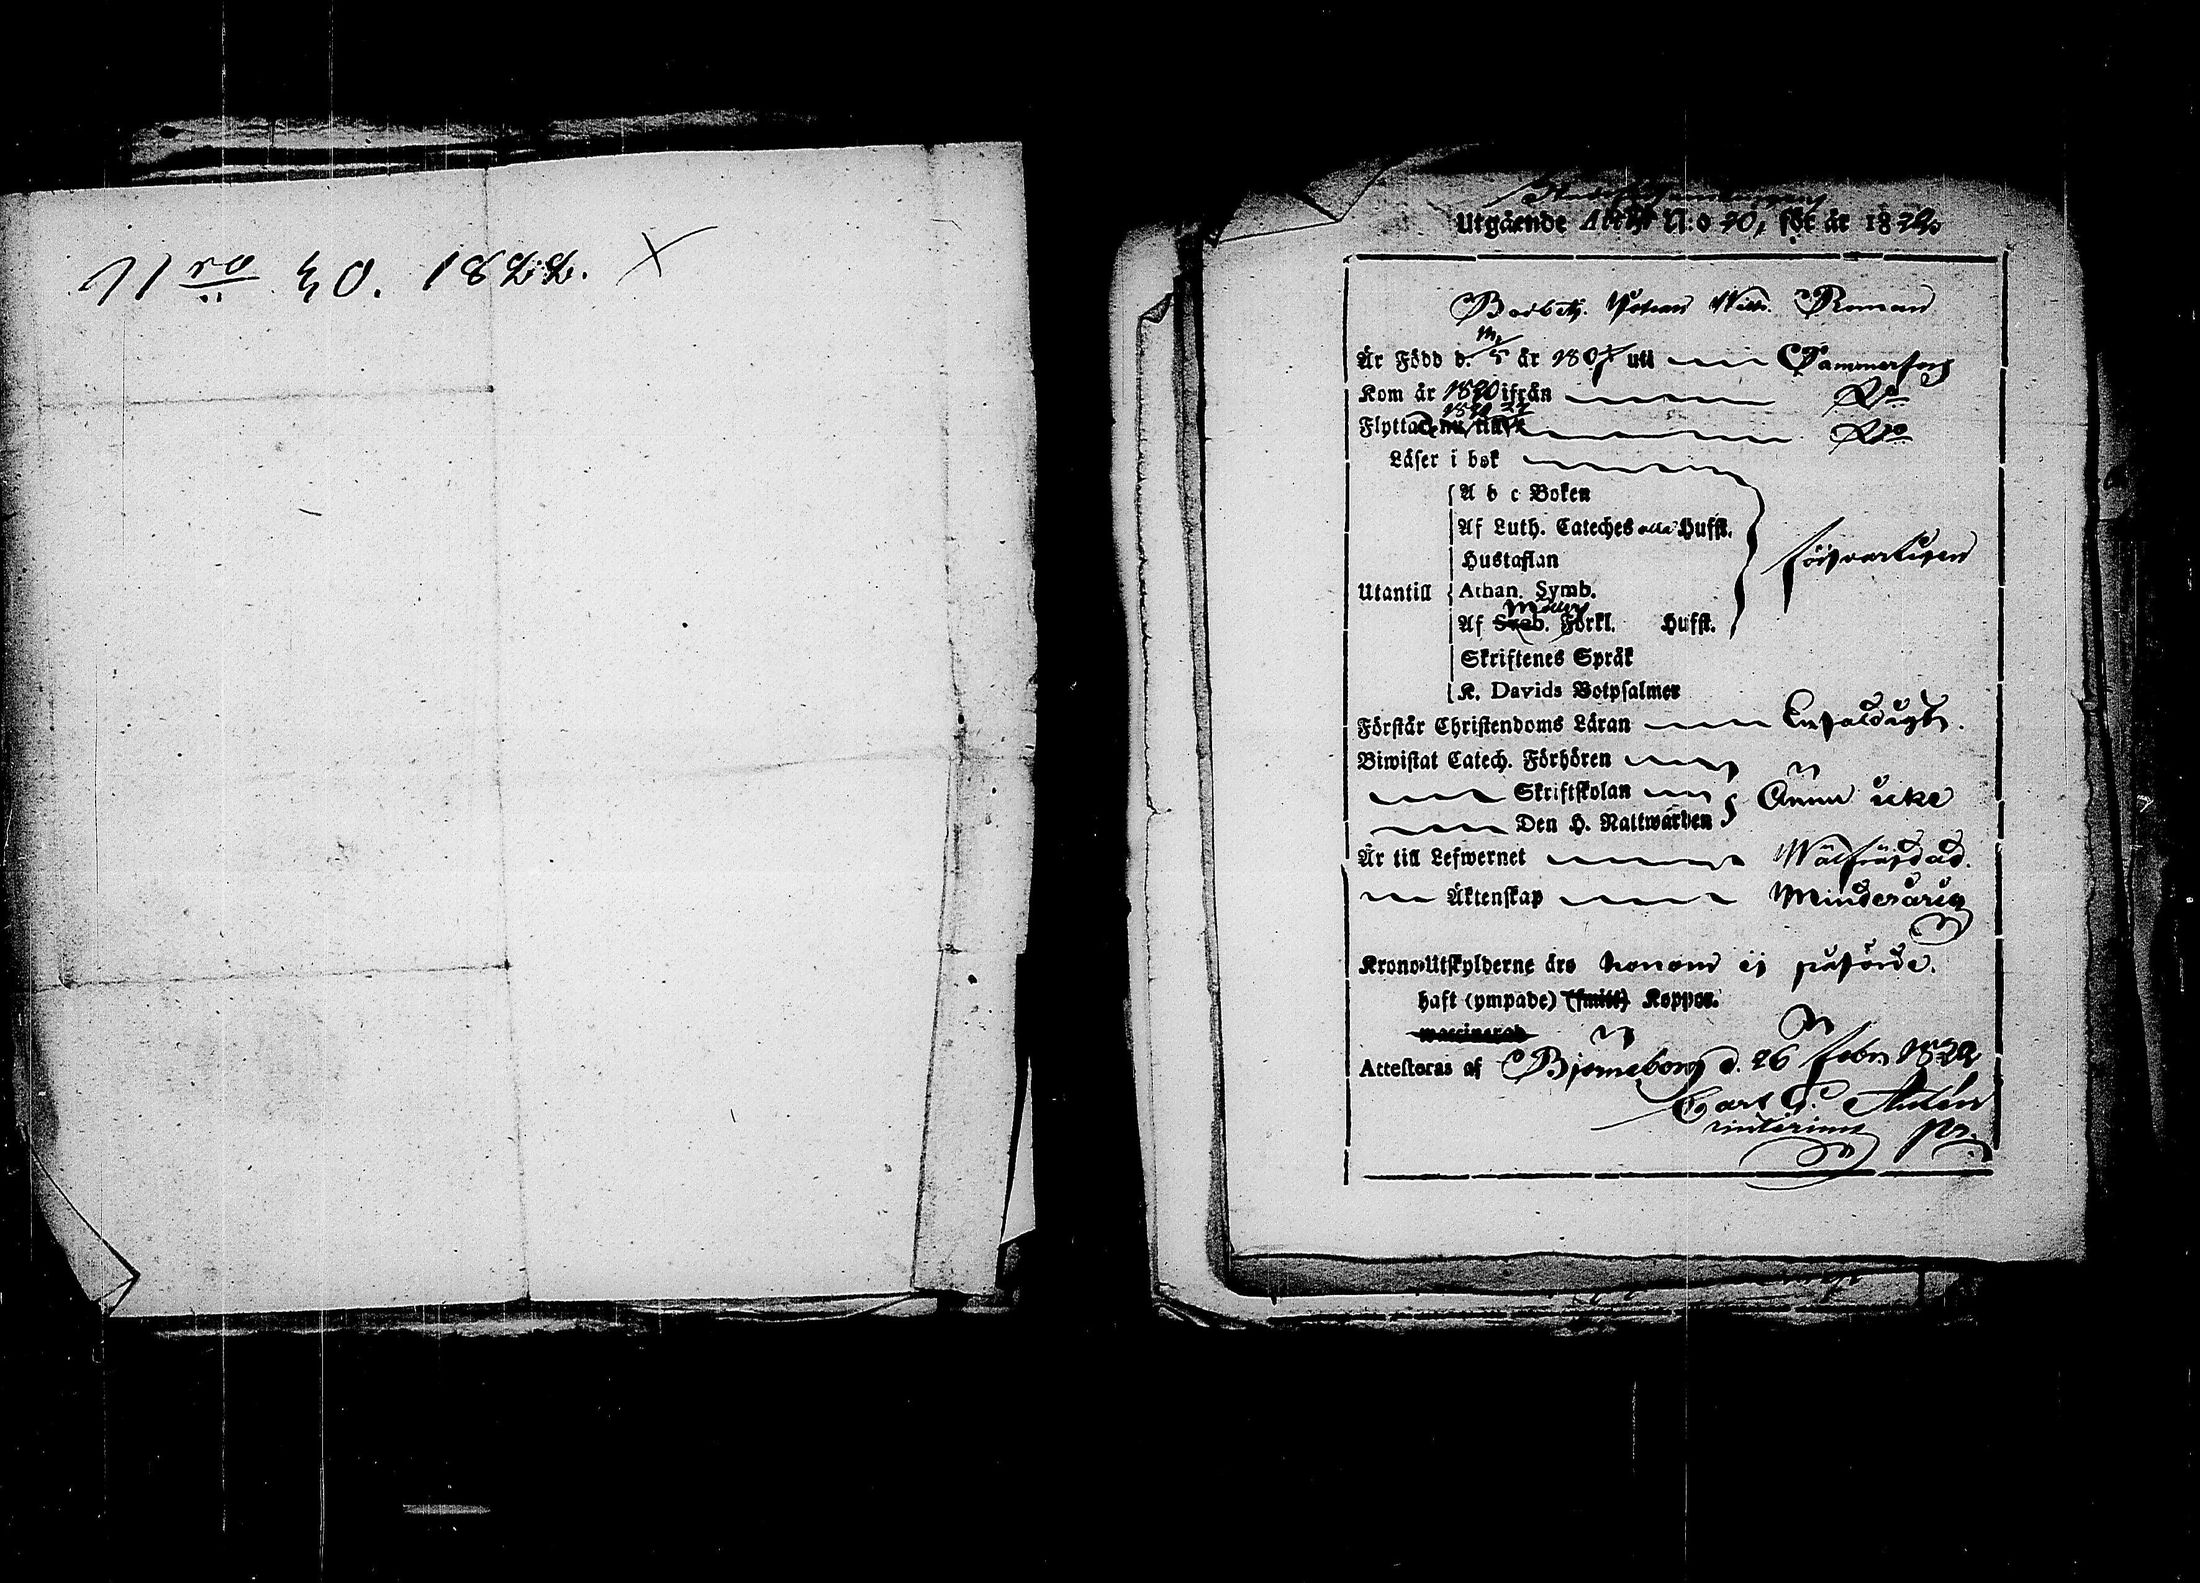 Nro 30. 1822. X
Utgående Attest N:o 20, för år 1822.
Johan Wilh. Roman
Är Född d. 5 år 180 uti Tammerfors
Kom år 1820 ifrån Do
Flyttad nu till Do
Läser i bok
A b c Boken
Af Luth. Cateches alla Hufst.
Hustaflan försvarligen
Utantill Athan. Symb.
Af Sveb. Förkl. Hufst.
Skriftenes Språk
K. Davids Botpsalmer
Förstår Christendoms Läran Enfaldigt.
Biwistat Catech. Förhören
Skriftskolan Ännu icke
Den H. Nattwarden
Är till Lefwernet Wälfräjdad.
Äktenskap Minderårig
Krono-Utskylderne äro honom ej påförde.
haft (ympade) (smitt) Koppor.
waccinerad
Attesteras af Bjorneborg d. 26 Febr 1822
Carl G.